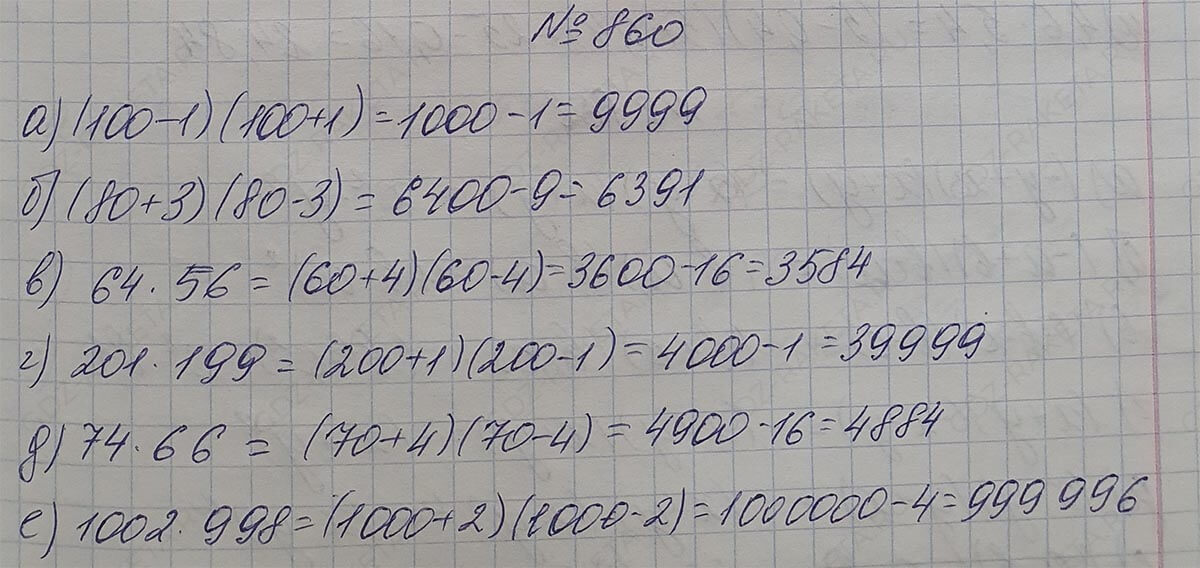 № 860
а) (100-1) (100+1) = 1000 - 1 = 9999
б) (80+3) (80-3) = 6400 - 9 = 6391
в) 64 · 56 = (60+4) (60-4) = 3600 - 16 = 3584
г) 201 · 199 = (200+1) (200-1) = 4000 - 1 = 39999
д) 74 · 66 = (70+4) (70-4) = 4900 - 16 = 4884
е) 1002 · 998 = (1000+2) (1000-2) = 1000000 - 4 = 999 996